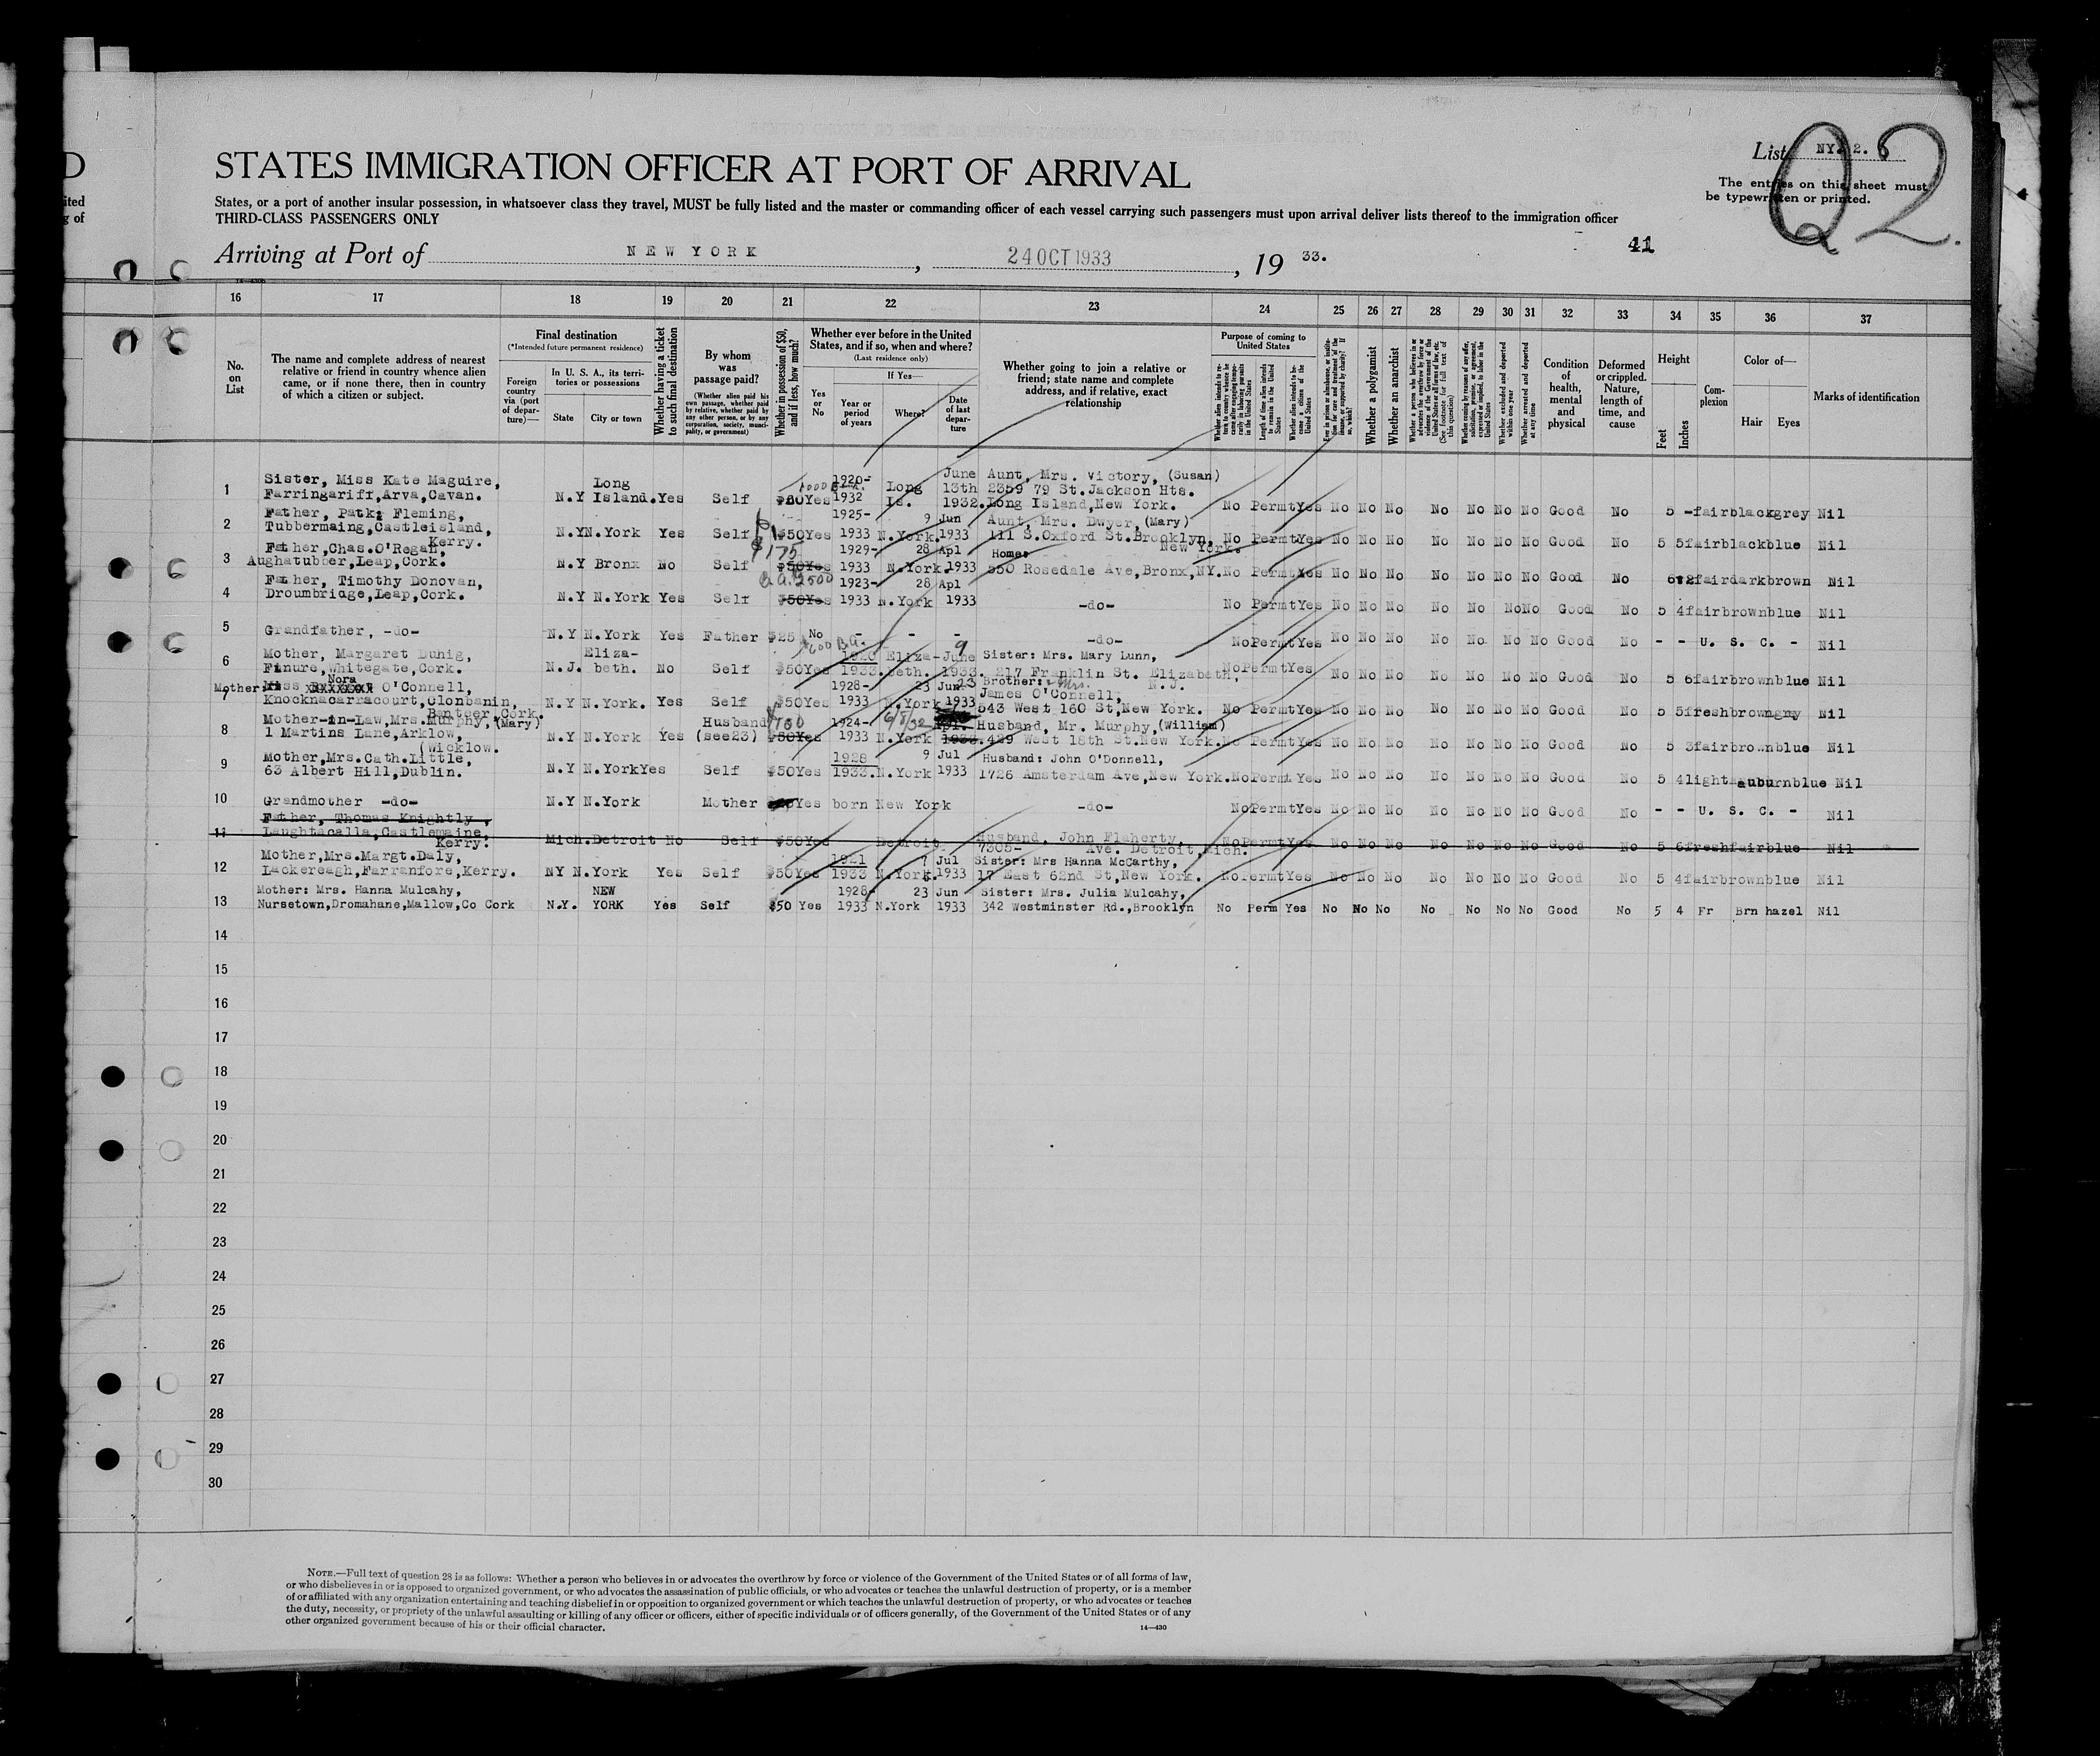 D
ited
g of
STATES IMMIGRATION OFFICER AT PORT OF ARRIVAL
List NY. 2. 6
Q2.
The entries on this sheet must
be typewritten or printed.
States, or a port of another insular possession, in whatsoever class they travel, MUST be fully listed and the master or commanding officer of each vessel carrying such passengers must upon arrival deliver lists thereof to the immigration officer
THIRD-CLASS PASSENGERS ONLY
41
Arriving at Port of NEW YORK, 24 OCT 1933, 19 33.
16 17 18 19 20 21 22 23 24 25 26 27 28 29 30 31 32 33 34 35 36 37
No. on List
The name and complete address of nearest relative or friend in country whence alien came, or if none there, then in country of which a citizen or subject.
Final destination
(*Intended future permanent residence)
Foreign country via (port of departure)—
In U. S. A., its territories or possessions
State City or town
Whether having a ticket to such final destination
By whom was passage paid?
(Whether alien paid his own passage, whether paid by relative, whether paid by any other person, or by any corporation, society, municipality, or government)
Whether in possession of $50, and if less, how much?
Whether ever before in the United States, and if so, when and where?
(Last residence only)
Yes or No
If Yes—
Year or period of years
Where?
Date of last departure
Whether going to join a relative or friend; state name and complete address, and if relative, exact relationship
Purpose of coming to United States
Length of time alien intends to remain in the United States
Whether alien intends to become a citizen of the United States
Whether a polygamist
Whether an anarchist
Whether excluded and deported within one year
Whether arrested and deported at any time
Condition of health, mental and physical
Deformed or crippled. Nature, length of time, and cause
Height
Feet Inches
Complexion
Color of—
Hair Eyes
Marks of identification
1 Sister, Miss Kate Maguire, Long 1920- June Aunt, Mrs. Victory, (Susan)
Farringariff,Arva,Cavan. N.Y Island. Yes Self Yes 1932 Long Is. 13th 1932. 2359 79 St.Jackson Hts. Long Island,New York. No Permt Yes No No No No No No No Good No 5 - fair black grey Nil
2 Father, Patk: Fleming, 1925- 9 Jun Aunt, Mrs. Dwyer, (Mary)
Tubbermaing,Castleisland, Kerry. N.Y N.York Yes Self $50 Yes 1933 N.York. 1933 111 S.Oxford St.Brooklyn, New York. No Permt Yes No No No No No No No Good No 5 5 fair black blue Nil
3 Father,Chas.O'Regan, $175 1929- 28 Apl Home:
Aughatubber,Leap,Cork. N.Y Bronx No Self $50 Yes 1933 N.York. 1933 550 Rosedale Ave,Bronx,NY. No Permt Yes No No No No No No No Good No fair dark brown Nil
4 Father, Timothy Donovan, 1923- 28 Apl
Droumbridge,Leap,Cork. N.Y N.York Yes Self $50 Yes 1933 N.York 1933 -do- No Permt Yes No No No No No No No Good No 5 4 fair brown blue Nil
5 Grandfather, -do- N.Y N.York Yes Father $25 No - - - -do- No Permt Yes No No No No No No No Good No - - U. S. C. - Nil
6 Mother, Margaret Dunig, Eliza- Eliza- June 9 Sister: Mrs. Mary Lunn,
Finure,Whitegate,Cork. N.J. beth. No Self $50 Yes 1933. beth. 1933. 217 Franklin St. Elizabeth, N.J. No Permt Yes No No No No No No No Good No 5 6 fair brown blue Nil
7 Mother: Miss Nora O'Connell, 1928- 23 Jun Brother: James O'Connell,
Knocknacarracourt,Clonbanin, Banteer,Cork. N.Y N.York. Yes Self $50 Yes 1933 N.York 1933 543 West 160 St,New York. No Permt Yes No No No No No No No Good No 5 5 fresh brown Nil
8 Mother-in-Law,Mrs.Murphy,(Mary) Husband 1924- 6/8/32 Husband, Mr. Murphy,(William)
1 Martins Lane,Arklow, (Wicklow. N.Y N.York Yes (see23) $50 Yes 1933 N.York 429 West 18th St.New York. No Permt Yes No No No No No No No Good No 5 3 fair brown blue Nil
9 Mother,Mrs.Cath.Little, 1928 9 Jul Husband: John O'Donnell,
63 Albert Hill,Dublin. N.Y N.York Yes Self $50 Yes 1933. N.York 1933 1726 Amsterdam Ave,New York. No Permt Yes No No No No No No No Good No 5 4 light auburn blue Nil
10 Grandmother -do- N.Y N.York Mother Yes born New York -do- No Permt Yes No No No No No No No Good No - - U. S. C. - Nil
11 Father, Thomas Knightly,
Laughtacalla,Castlemaine, Kerry. Mich. Detroit No Self $50 Yes Detroit Husband, John Flaherty, 7305- Ave. Detroit,Mich. No Permt Yes No No No No No No No Good No 5 6 fresh fair blue Nil
12 Mother,Mrs.Margt.Daly, 1921 7 Jul Sister: Mrs Hanna McCarthy,
Lackereagh,Farranfore,Kerry. NY N.York Yes Self $50 Yes 1933 N.York. 1933 17 East 62nd St,New York. No Permt Yes No No No No No No No Good No 5 4 fair brown blue Nil
13 Mother: Mrs. Hanna Mulcahy, NEW 1928- 23 Jun Sister: Mrs. Julia Mulcahy,
Nursetown,Dromahane,Mallow,Co Cork N.Y. YORK Yes Self $50 Yes 1933 N.York 1933 342 Westminster Rd.,Brooklyn No Perm Yes No No No No No No No Good No 5 4 Fr Brn hazel Nil
14
15
16
17
18
19
20
21
22
23
24
25
26
27
28
29
30
NOTE.—Full text of question 28 is as follows: Whether a person who believes in or advocates the overthrow by force or violence of the Government of the United States or of all forms of law,
or who disbelieves in or is opposed to organized government, or who advocates the assassination of public officials, or who advocates or teaches the unlawful destruction of property, or is a member
of or affiliated with any organization entertaining and teaching disbelief in or opposition to organized government or which teaches the unlawful destruction of property, or who advocates or teaches
the duty, necessity, or propriety of the unlawful assaulting or killing of any officer or officers, either of specific individuals or of officers generally, of the Government of the United States or of any
other organized government because of his or their official character.
14—430